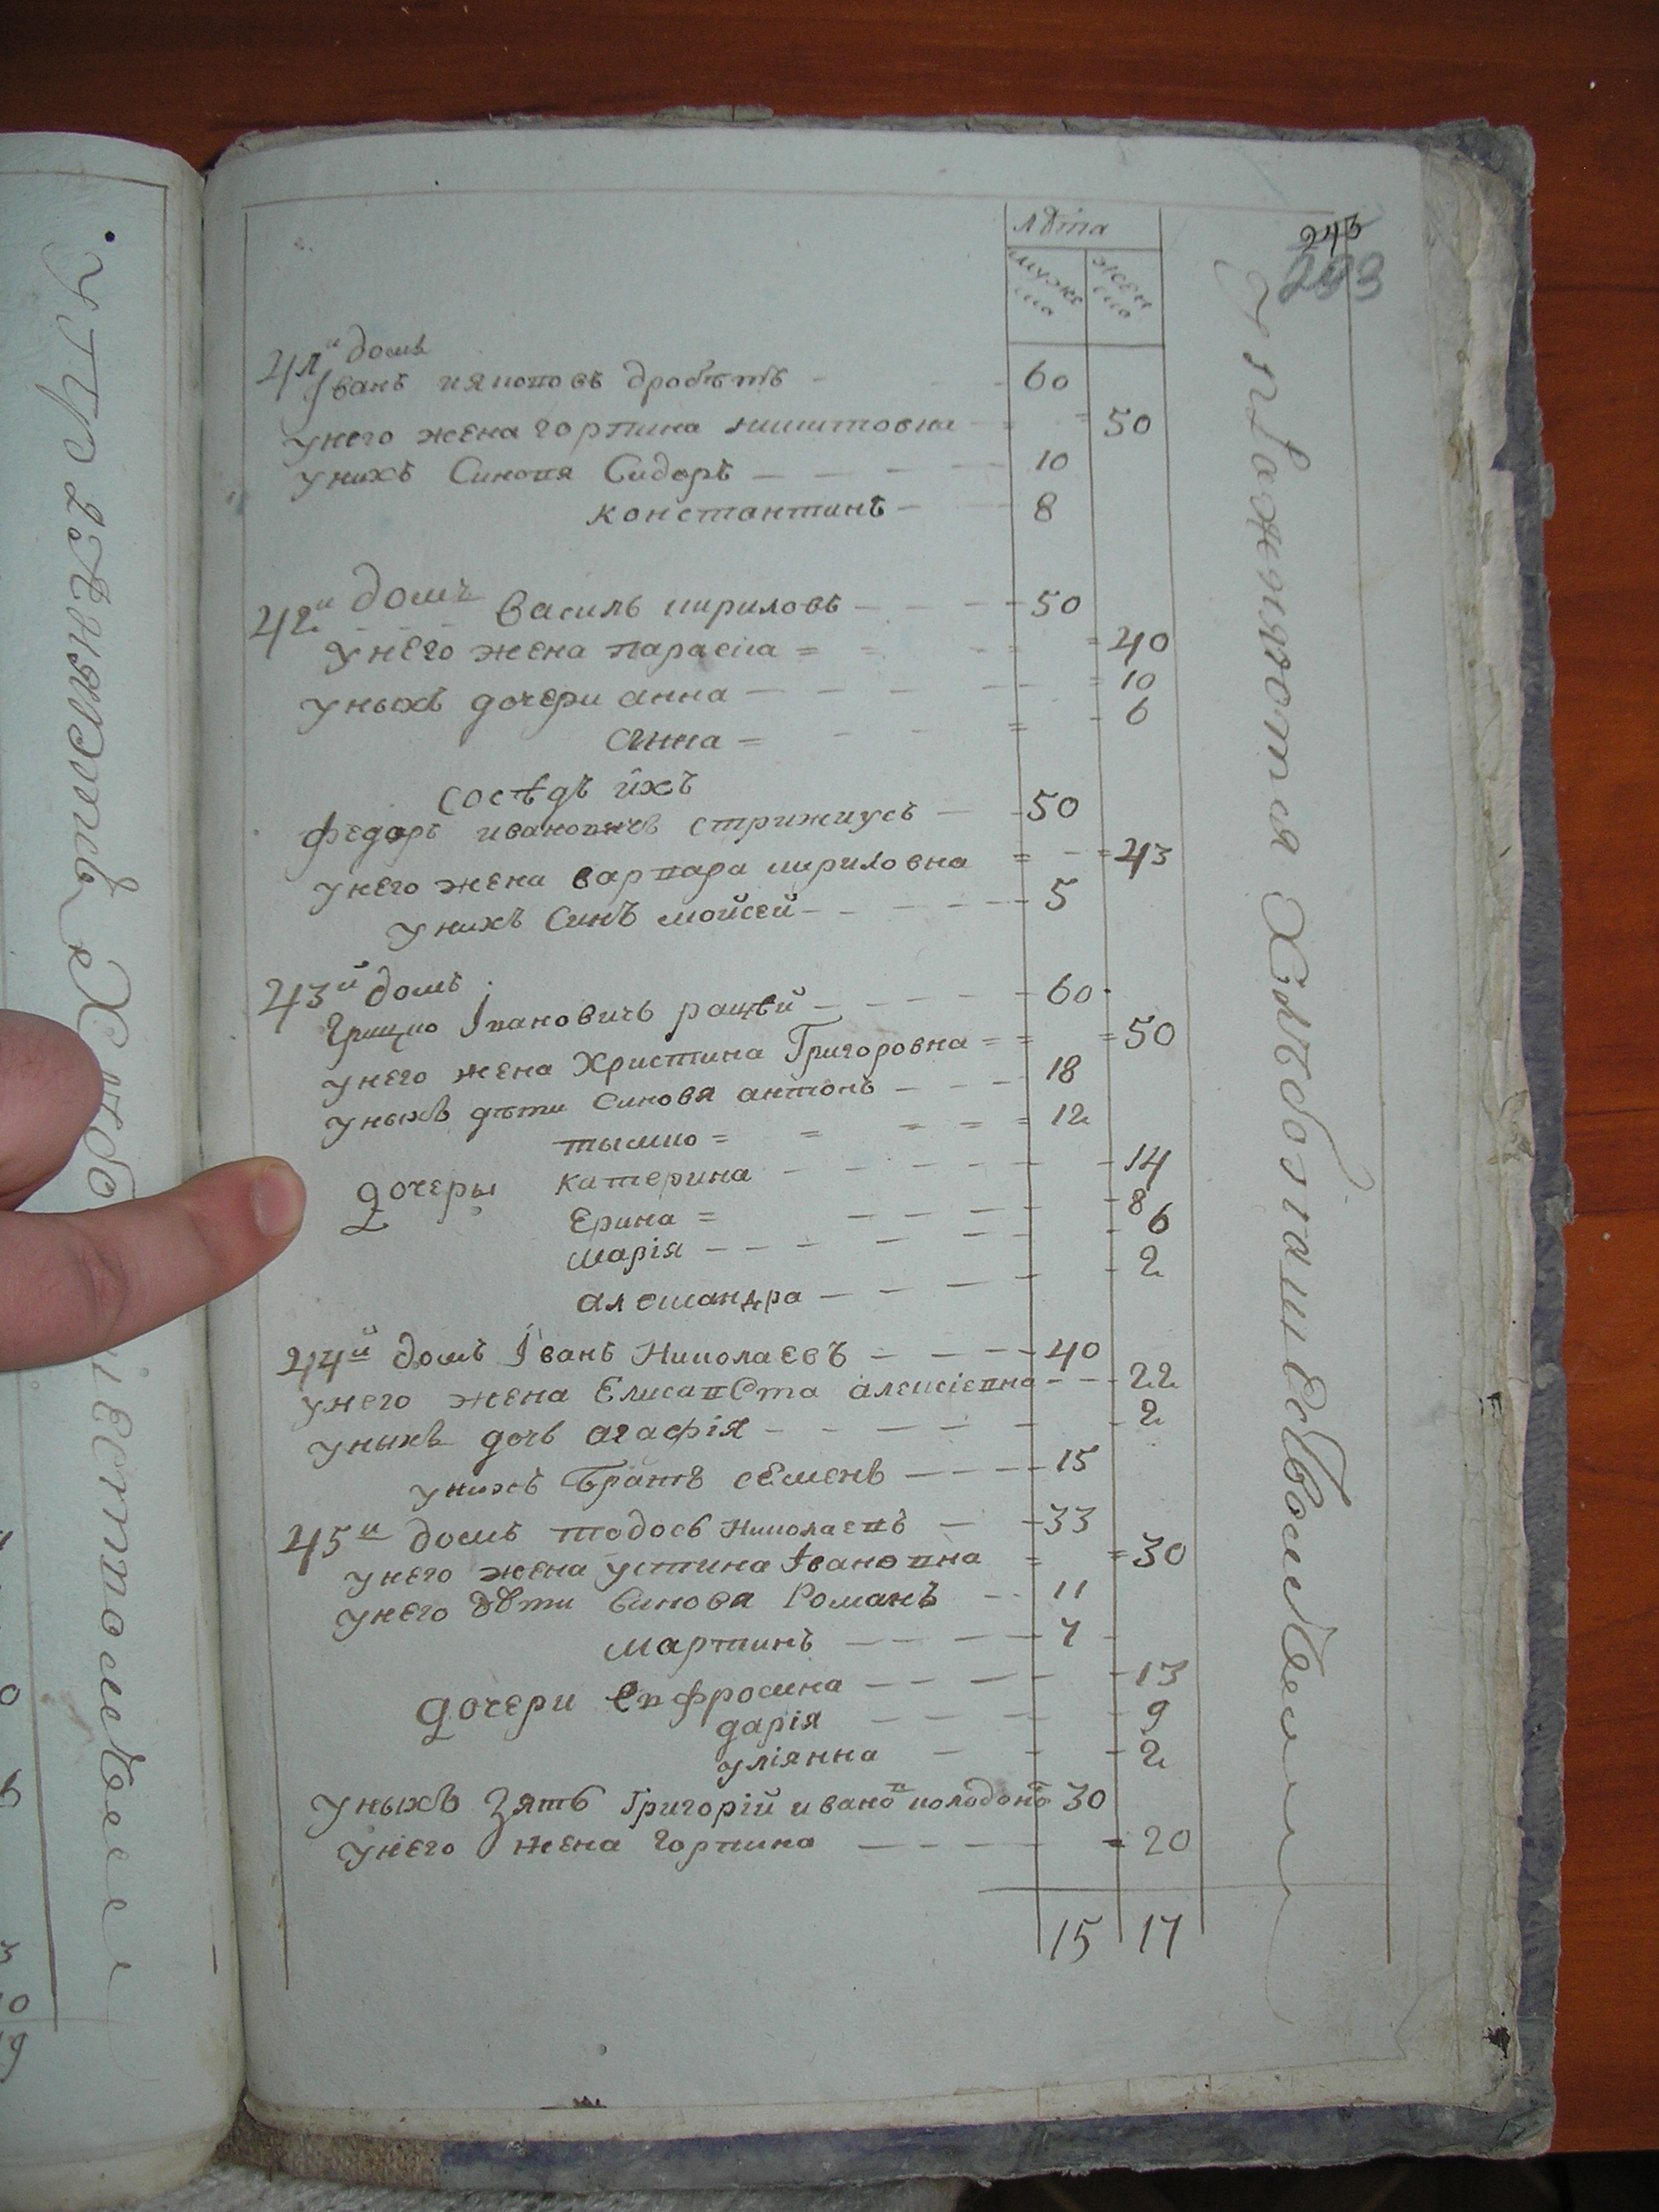 лѣта
мужеска
женска
243
293
41й домъ
Іванъ дробетъ 60
у него жена горпина 50
у нихъ Синовя Сидоръ 10
константинъ 8
42й домъ Василь кириловъ 50
у него жена параска 40
у ныхъ дочери анна 10
анна 6
Сосѣдъ ихъ
федоръ ивановичъ стрижиусъ 50
у него жена варвара кириловна 43
у нихъ Синъ мойсей 5
43й домъ
Грицко Івановичъ рацѣй 60
у него жена Христина Григоровна 50
у ныхъ дѣти Синовя антонъ 18
тымко 12
дочеры катерина 14
Ерина 8
марія 6
александра 2
44й домъ Іванъ Николаевъ 40
у него жена Елисавета алексіевна 22
у ныхъ дочъ агафія 2
у нихъ братъ семенъ 15
45й домъ тодосъ Николаевъ 33
у него жена устина Івановна 30
у него дѣти Синовя Романъ 11
мартинъ 7
дочери Евфросина 13
дарія 9
уліянна 2
у ныхъ зять Григорій иванов колодон 30
у него жена горпина 20
15 17
упражняются Хлѣбопашествомъ